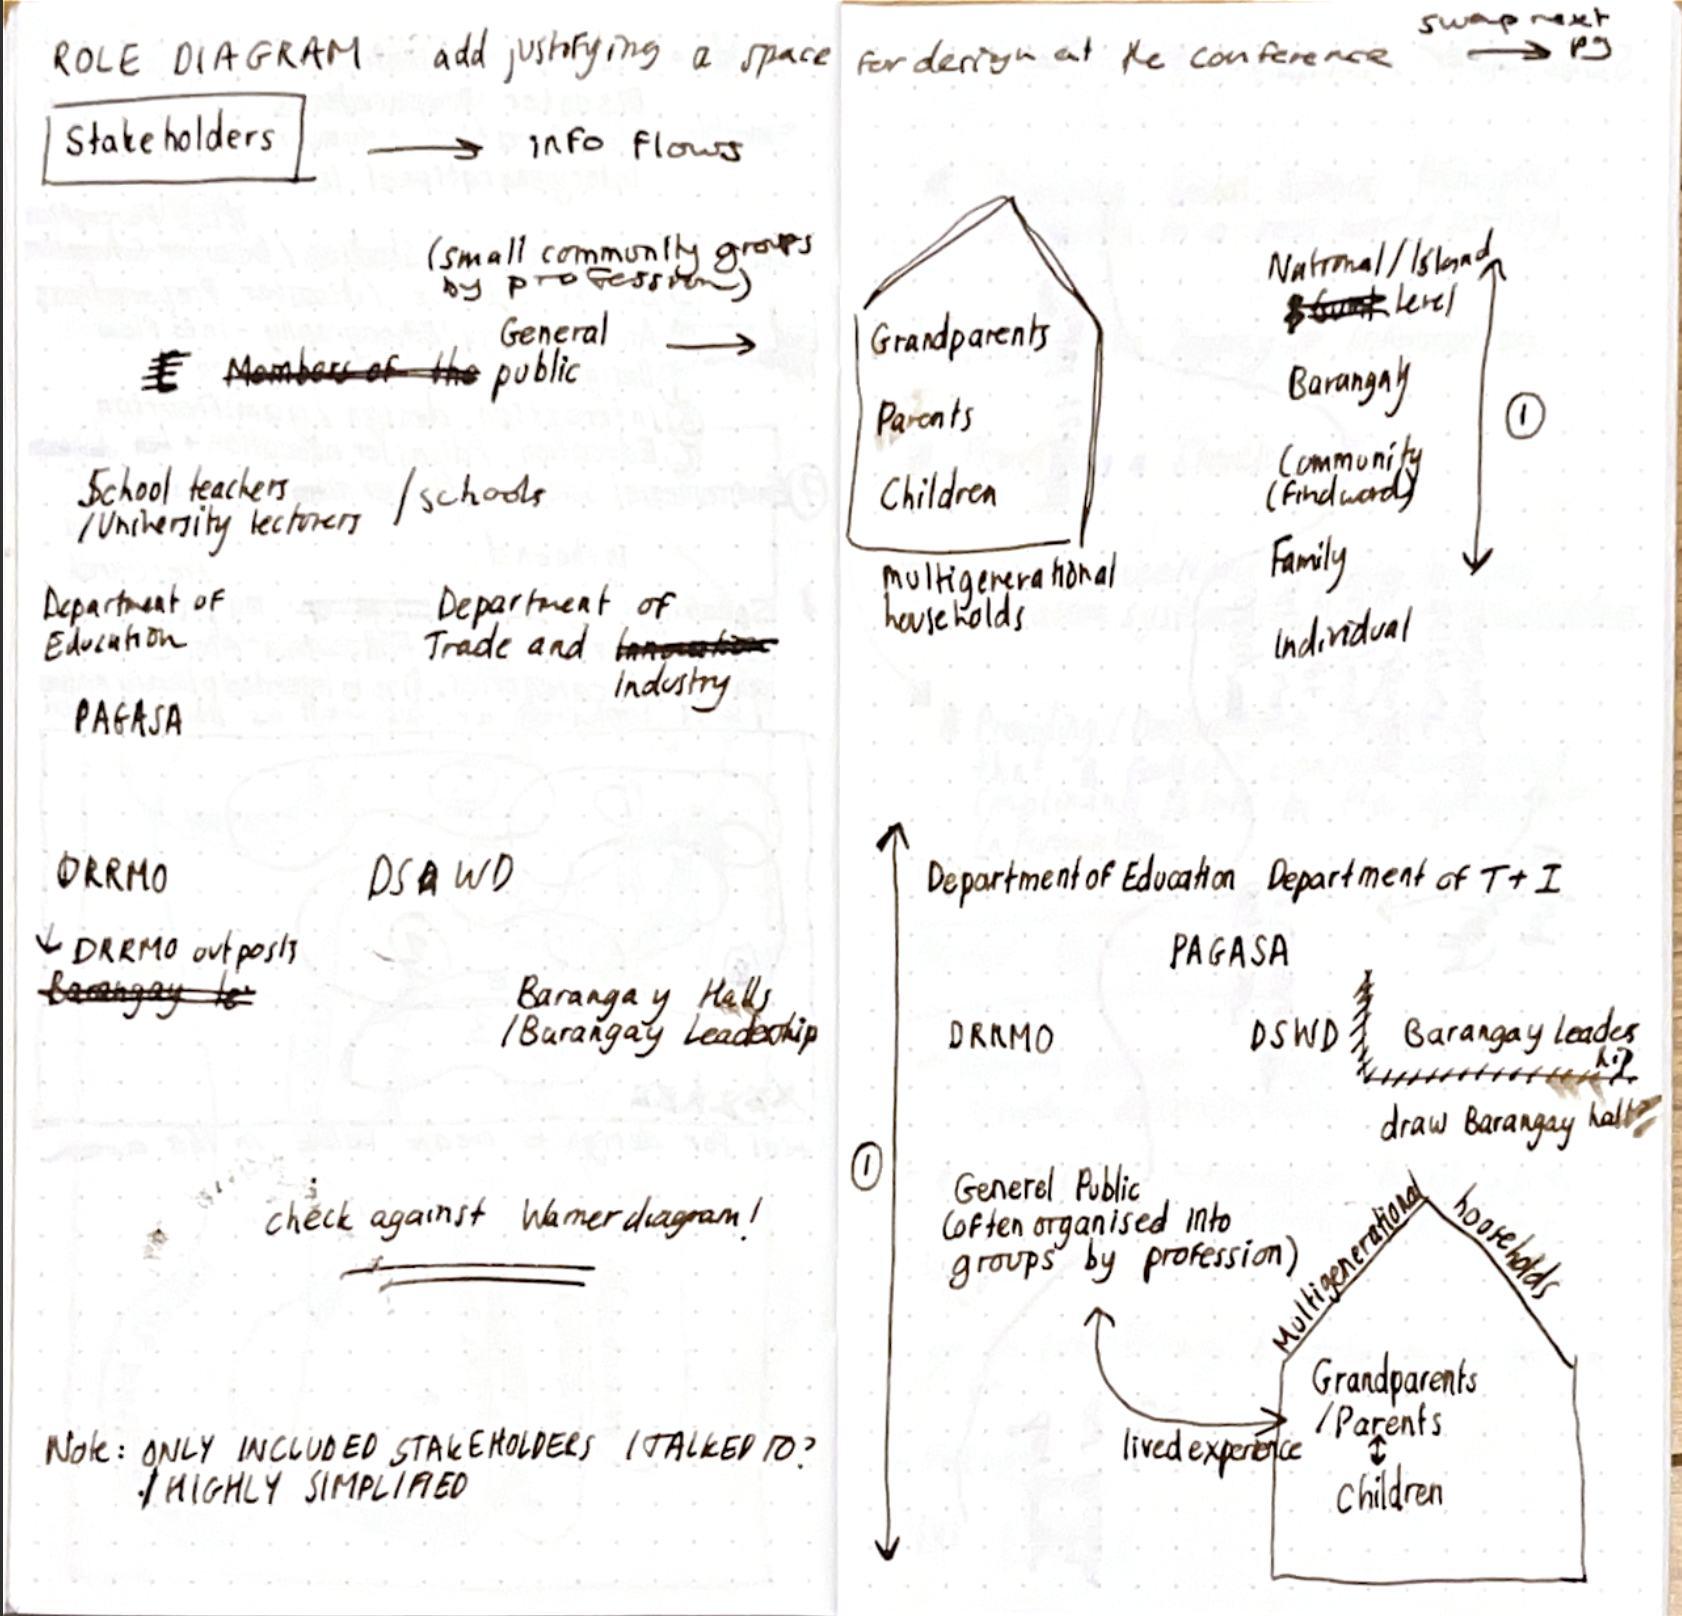 ROLE DIAGRAM add justifying a space for design at the conference
swap next
pg
Stakeholders
info flows
(small community groups
by profession)
General
Members of the public
School teachers
/University lecturers
/schools
Department of
Education
Department of
Trade and
Industry
PAGASA
DRRMO
DSWD
↓ DRRMO outposts
Barangay le
Barangay Halls
/Barangay Leadership
check against Warner diagram!
Note: ONLY INCLUDED STAKEHOLDERS I TALKED TO?
/HIGHLY SIMPLIFIED
Grandparents
Parents
Children
multigenerational
households
National/Island
level
Barangay
Community
(find word)
Family
Individual
1
Department of Education
Department of T+I
PAGASA
DRRMO
DSWD
Barangay leaders
hip
draw Barangay hall?
1
General Public
(often organised into
groups by profession)
lived experience
Multigenerational
households
Grandparents
/Parents
↕
Children